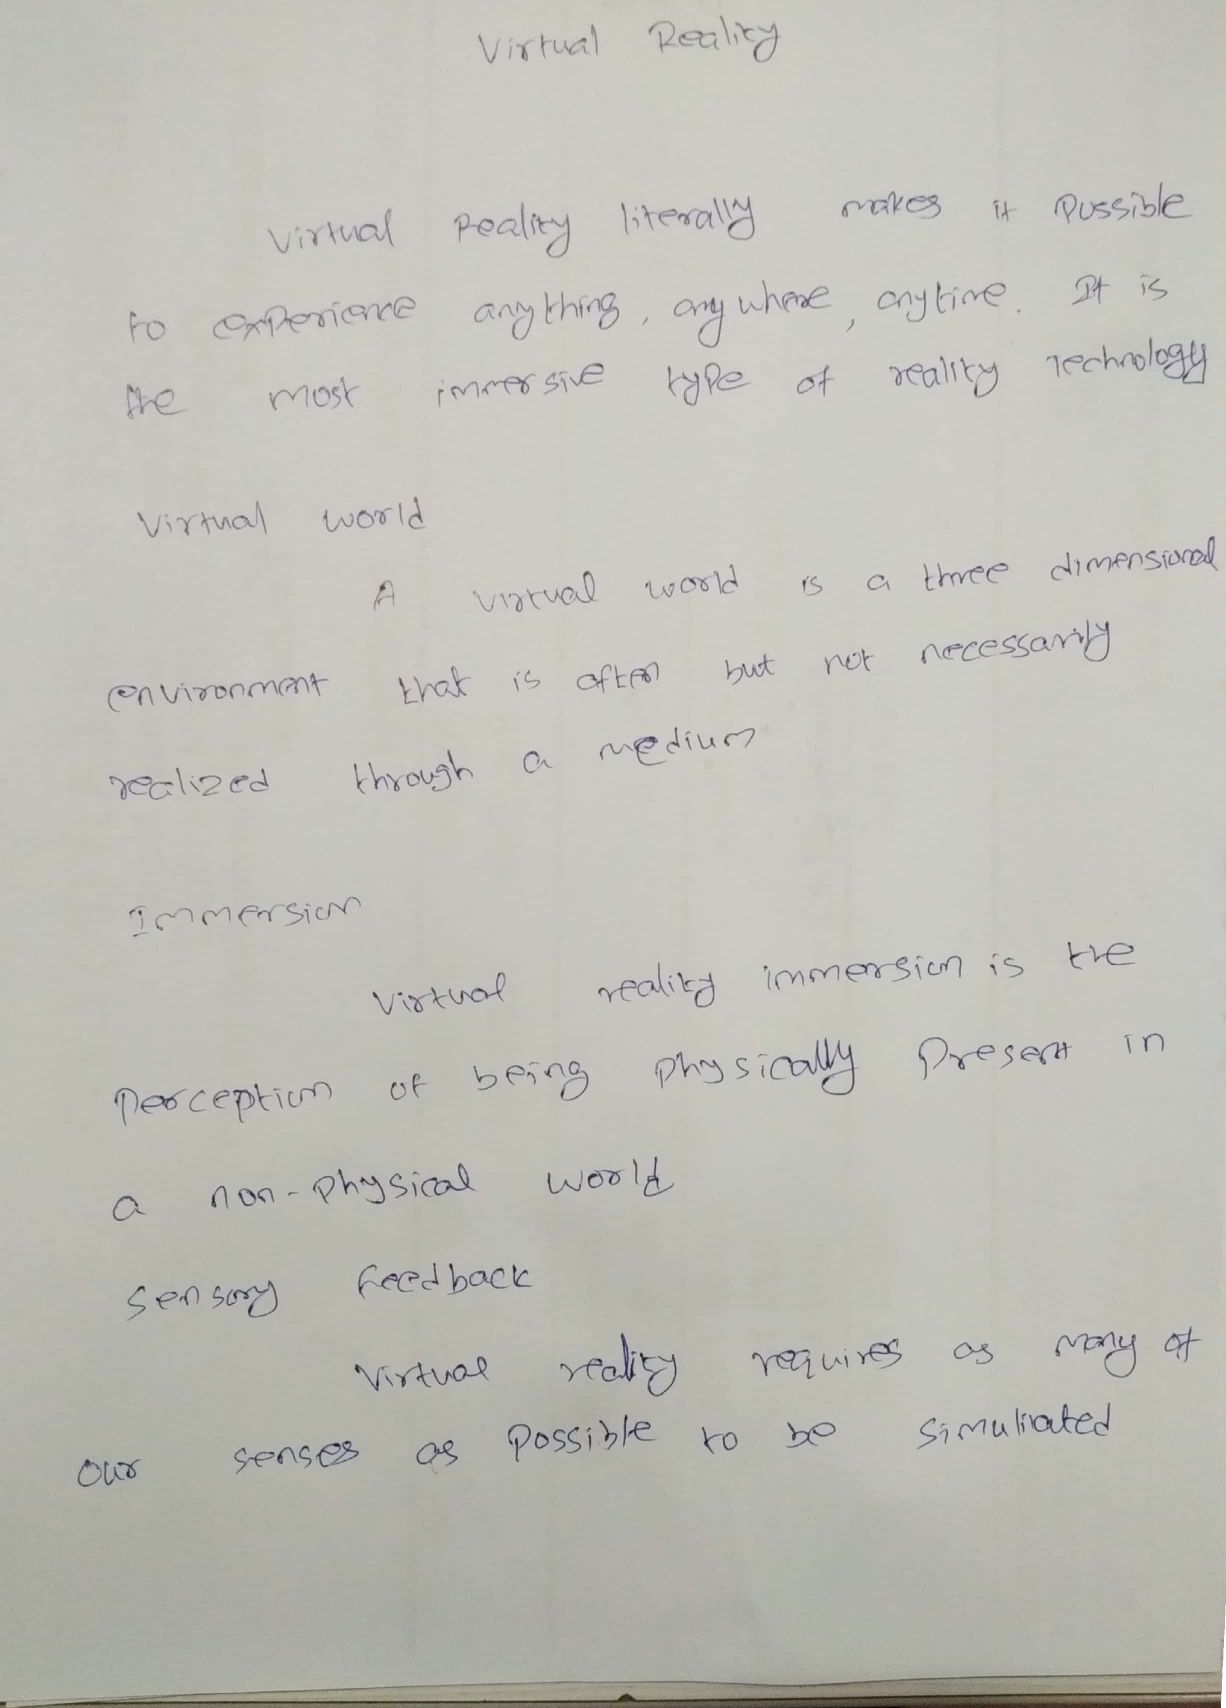 Virtual Reality
Virtual Reality literally makes it possible
to experience anything, anywhere, anytime. It is
the most immersive type of reality Technology
Virtual world
A virtual world is a three dimensional
environment that is often but not necessarily
realized through a medium
Immersion
Virtual reality immersion is the
perception of being physically present in
a non-physical world
Sensory feedback
Virtual reality requires as many of
our senses as possible to be simuliated